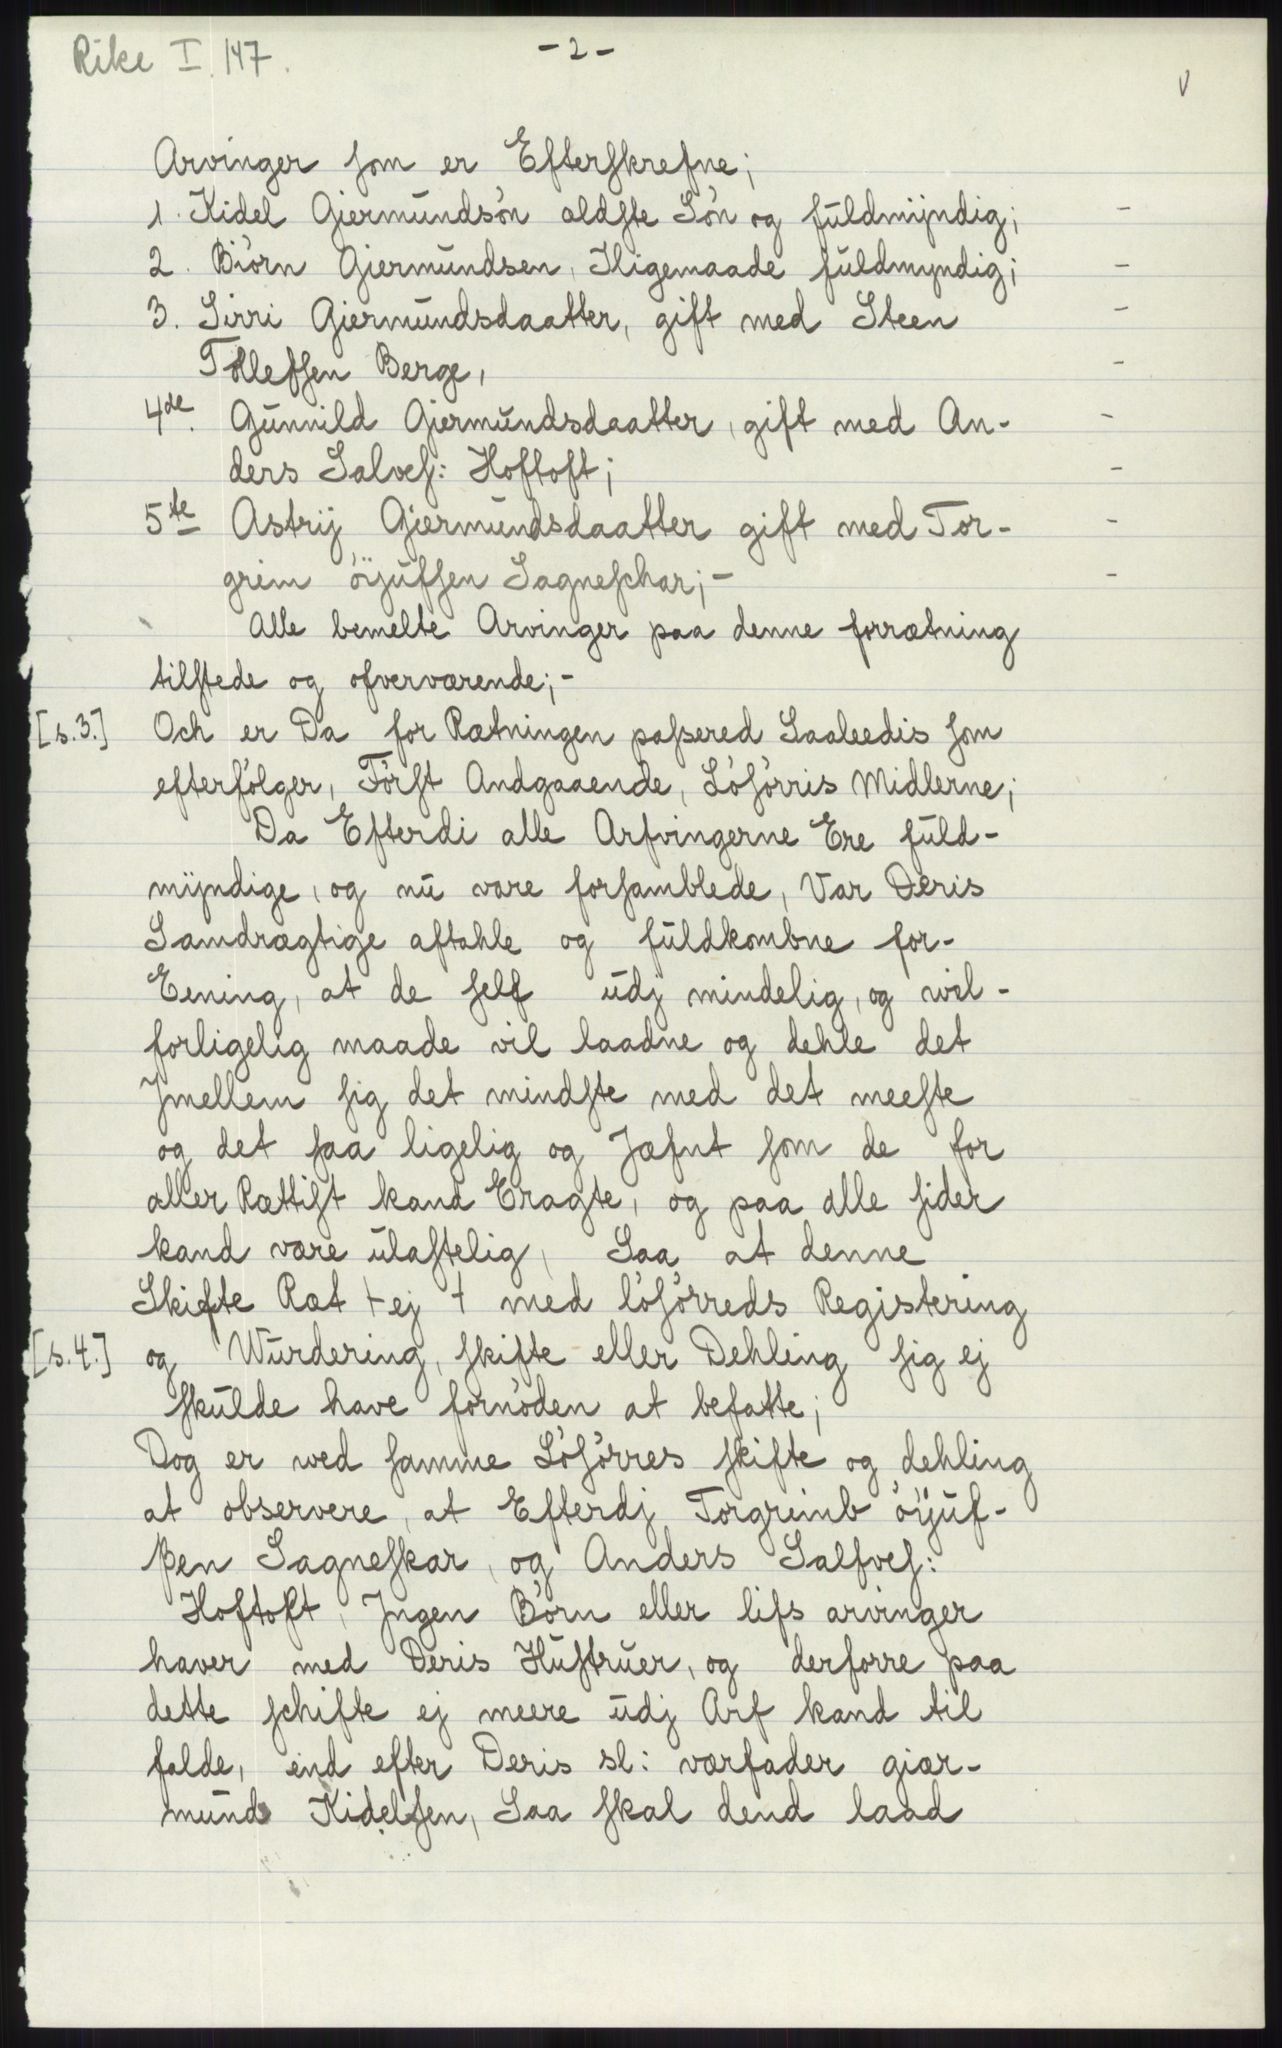 Rike I. 147.
- 2 -
V
Arvinger som er Efterskrefne;
1. Kidel Giermundsön aldste Sön og fuldmÿndig; -
2. Biörn Gjermundsen, Iligemaade fuldmyndig; -
3. Sirri Giermundsdaatter, gift med Steen -
Tollefsen Berge, -
4de. Gunnild Gjermundsdaatter, gift med An- -
ders Salves: Hoftoft; -
5te Astrij Gjermundsdaatter gift med Tor- -
grim öÿufsen Sagneschar; - -
Alle bemelte Arvinger paa denne forrætning
tilstede og ofverværende; -
[s.3.] Och er Da for Rætningen passered Saaleedis som
efterfölger, Först Andgaaende, Lösörris Midlerne;
Da Efterdi alle Arfvingerne Ere fuld-
mÿndige, og nu vare forsamblede, Var Deris
Samdrægtige aftahle og fuldkombne for-
Eening, at de self udj mindelig, og wel-
forligelig maade vil laadne og dehle det
Jmellem sig det mindste med det meeste
og det saa ligelig og Jæfnt som de for
aller Rættist kand Eragte, og paa alle sider
kand være ulastelig, Saa at denne
Skifte Ræt + ej + med lösörreds Registering
[s.4.] og Wurdering, skifte eller Dehling sig ej
skulde have fornöden at befatte;
Dog er wed samme Lösörres skifte og dehling
at observere, at Efterdj Torgrimb öÿuf-
sen Sagneskar, og Anders Salfves:
Hoftoft, Jngen Börn eller lifs arvinger
haver med Deris Hustruer, og derforre paa
dette schifte ej meere udj Arf kand til
falde, end efter Deris sl: værfader giær-
mund Kidelsen, Saa skal dend laad